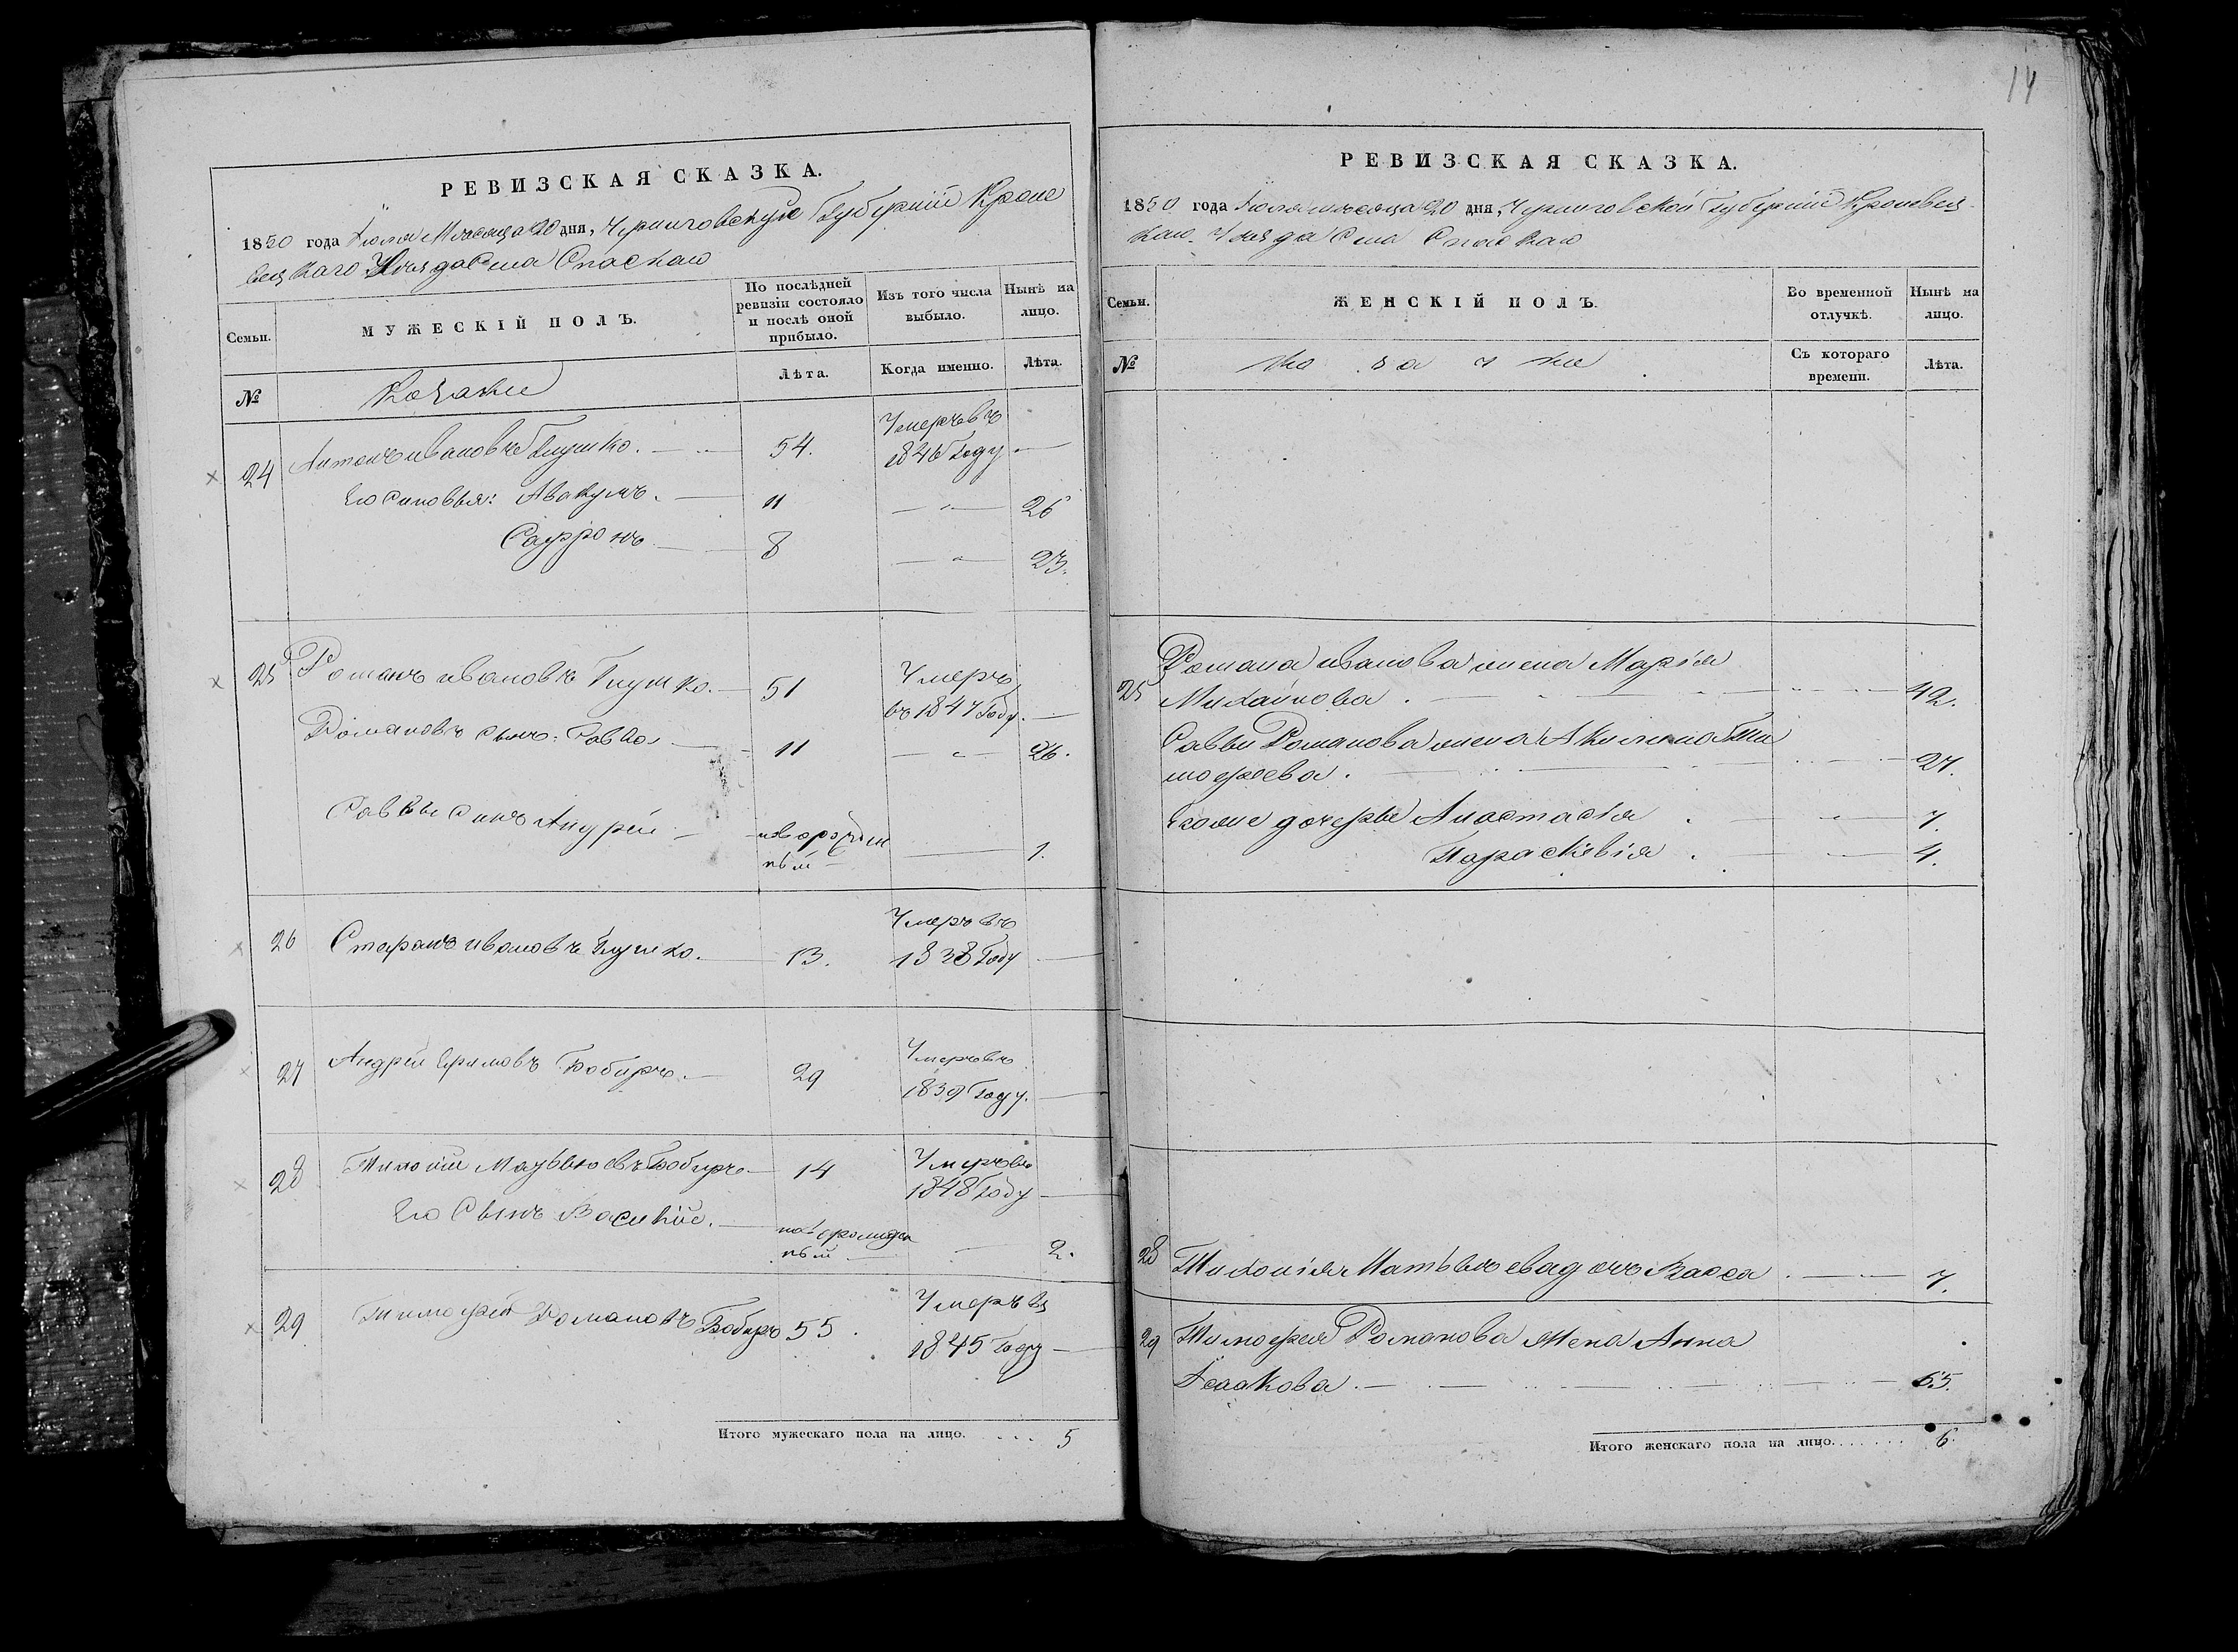 14
РЕВИЗСКАЯ СКАЗКА.
1850 года Июля Месяца 20 дня, Черниговскую Губерніи Кроле
вецкаго Уезда Села Спаскаго
Семьи.
МУЖЕСКІЙ ПОЛЪ.
По послѣдней ревизіи состояло и послѣ оной прибыло.
Изъ того числа выбыло.
Нынѣ на лицо.
№
Козаки
Лѣта.
Когда именно.
Лѣта.
24 Антонъ ивановъ Глушко. 54. Умеръ въ
1846 Году
Его Синовья: Авакумъ. 11 26
Сафронъ 8 23.
25 Романъ ивановъ Глушко. 51 Умеръ
въ 1847 Году.
Романовъ сынъ: Савва 11 26.
Саввы Синъ Андрей новорожден
ный 1.
26 Стефанъ ивановъ Глушко. 13. Умеръ въ
1838 Году
27 Андрей Ефимовъ Бобырь. 29 Умеръ въ
1839 Году.
28 Тихоній Матвѣевъ Бобырь 14 Умеръ въ
1848 Году
Его Сынъ Василій. новорожден
ный 2.
29 Тимофей Романовъ Бобырь 55. Умеръ въ
1845 Году
Итого мужескаго пола на лицо. 5
РЕВИЗСКАЯ СКАЗКА.
1850 года Июля месяца 20 дня, Черниговской Губерніи Кролевец
каго Уезда Села Спаскаго
Семьи.
ЖЕНСКІЙ ПОЛЪ.
Во временной отлучкѣ.
Нынѣ на лицо.
№
ко за ч ки
Съ котораго времени.
Лѣта.
25 Романа иванова жена Марія
Михайлова. 42.
Саввы Романова жена Акилина Ти
мофеева. 27.
Егоже дочерье Анастасія 7.
Параскевія 4.
28 Тихонія Матвѣева дочь Васса 7.
29 Тимофея Романова Жена Анна
Исаакова. 65.
Итого женскаго пола на лицо. 6.